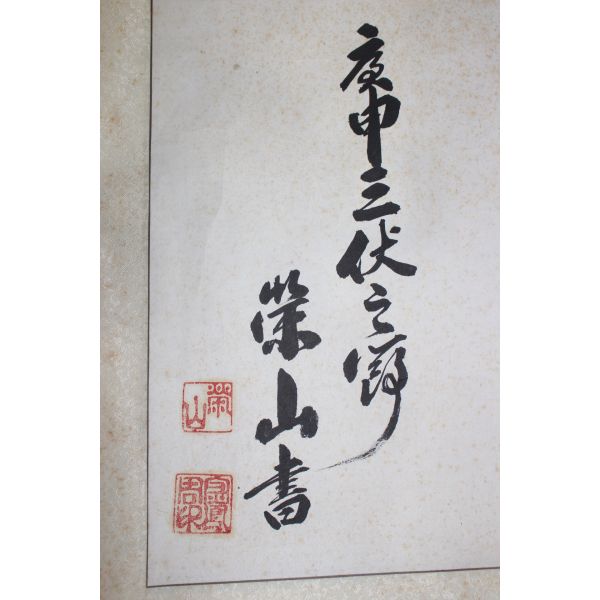 庚申三伏之節
柴山書